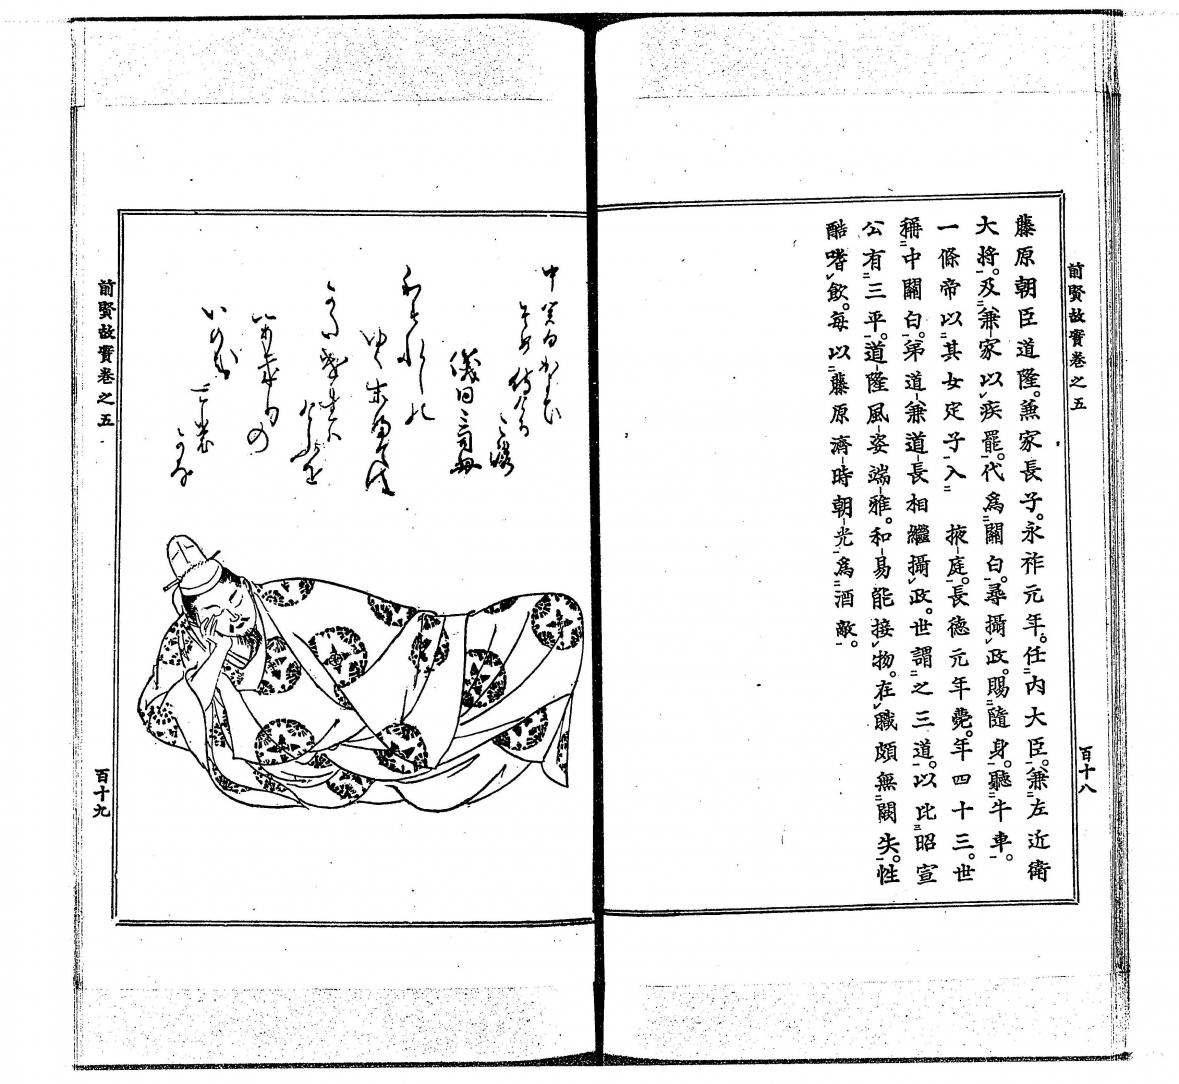 前賢故實巻之五
藤原朝臣道隆。兼家長子。永祚元年。任内大臣。兼左近衛
大将。及兼家以疾罷。代爲關白。尋攝政。賜隨身。聽牛車。
一條帝以其女定子入　掖庭。長徳元年薨。年四十三。世
稱中關白。弟道兼道長相繼攝政。世謂之三道。以比昭宣
公有三平。道隆風姿端雅。和易能接物。在職頗無闕失。性
酷嗜飲。毎以藤原濟時朝光爲酒敵。
百十八
中関白かよひ
そめ侍ける
ころ
儀同三司母
わすれしの
ゆく末まては
かたけれは
けふを
かきりの
いのち
ともかな
前賢故實巻之五
百十九